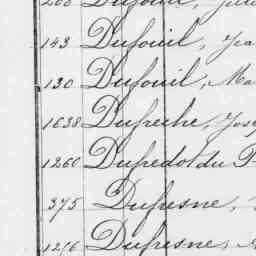 200 Dufouil, Jul
143 Dufouil, Jea
130 Dufouil, Ma
1638 Dufreche, Jose
1260 Dufredot du P
375 Dufresne,
1256 Dufresne, A